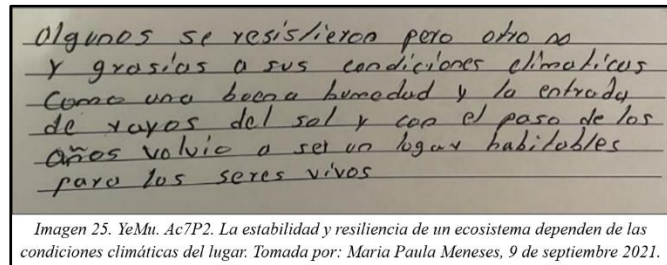 Algunos se resistieron pero otro no
y grasias a sus condiciones climaticas
Como una buena humedad y la entrada
de rayos del sol y con el paso de los
años volvio a ser un lugar habitables
para los seres vivos
Imagen 25. YeMu. Ac7P2. La estabilidad y resiliencia de un ecosistema dependen de las
condiciones climáticas del lugar. Tomada por: Maria Paula Meneses, 9 de septiembre 2021.